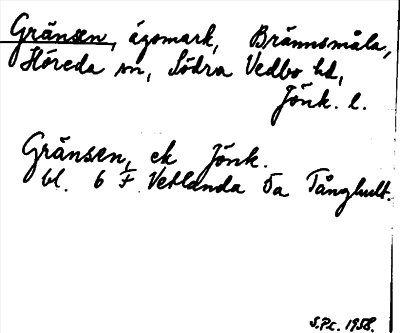 Gränsen, ägomark, Brännsmåla,
Höreda sn, Södra Vedbo hd,
Jönk. l.
Gränsen, ek Jönk.
bl. 6 F Vetlanda 5a Tånghult.
S.Pc. 1958.